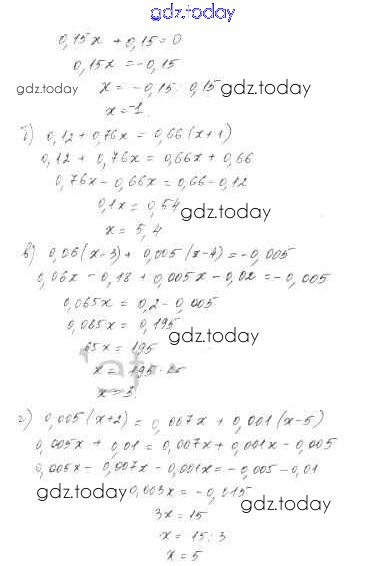 gdz.today
0,15x + 0,15 = 0
0,15x = -0,15
gdz.today x = -0,15 : 0,15 gdz.today
x = -1.
б) 0,12 + 0,76x = 0,66(x+1)
0,12 + 0,76x = 0,66x + 0,66
0,76x - 0,66x = 0,66 - 0,12
0,1x = 0,54
gdz.today
x = 5,4
в) 0,06(x-3) + 0,005(x-4) = -0,005
0,06x - 0,18 + 0,005x - 0,02 = -0,005
0,065x = 0,2 - 0,005
0,065x = 0,195
gdz.today
65x = 195
x = 195 : 65
x = 3.
г) 0,005(x+2) = 0,007x + 0,001(x-5)
0,005x + 0,01 = 0,007x + 0,001x - 0,005
0,005x - 0,007x - 0,001x = -0,005 - 0,01
gdz.today 0,003x = -0,015
gdz.today
3x = 15
x = 15 : 3
x = 5